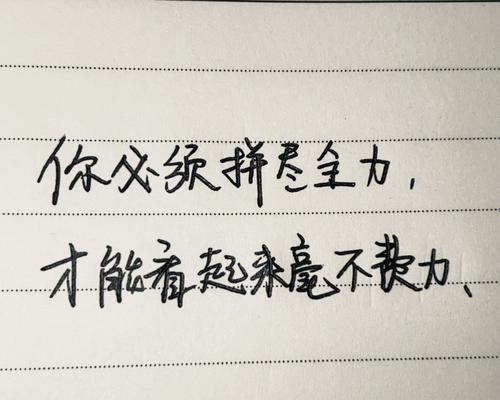 你必须拼尽全力,
才能看起来毫不费力、